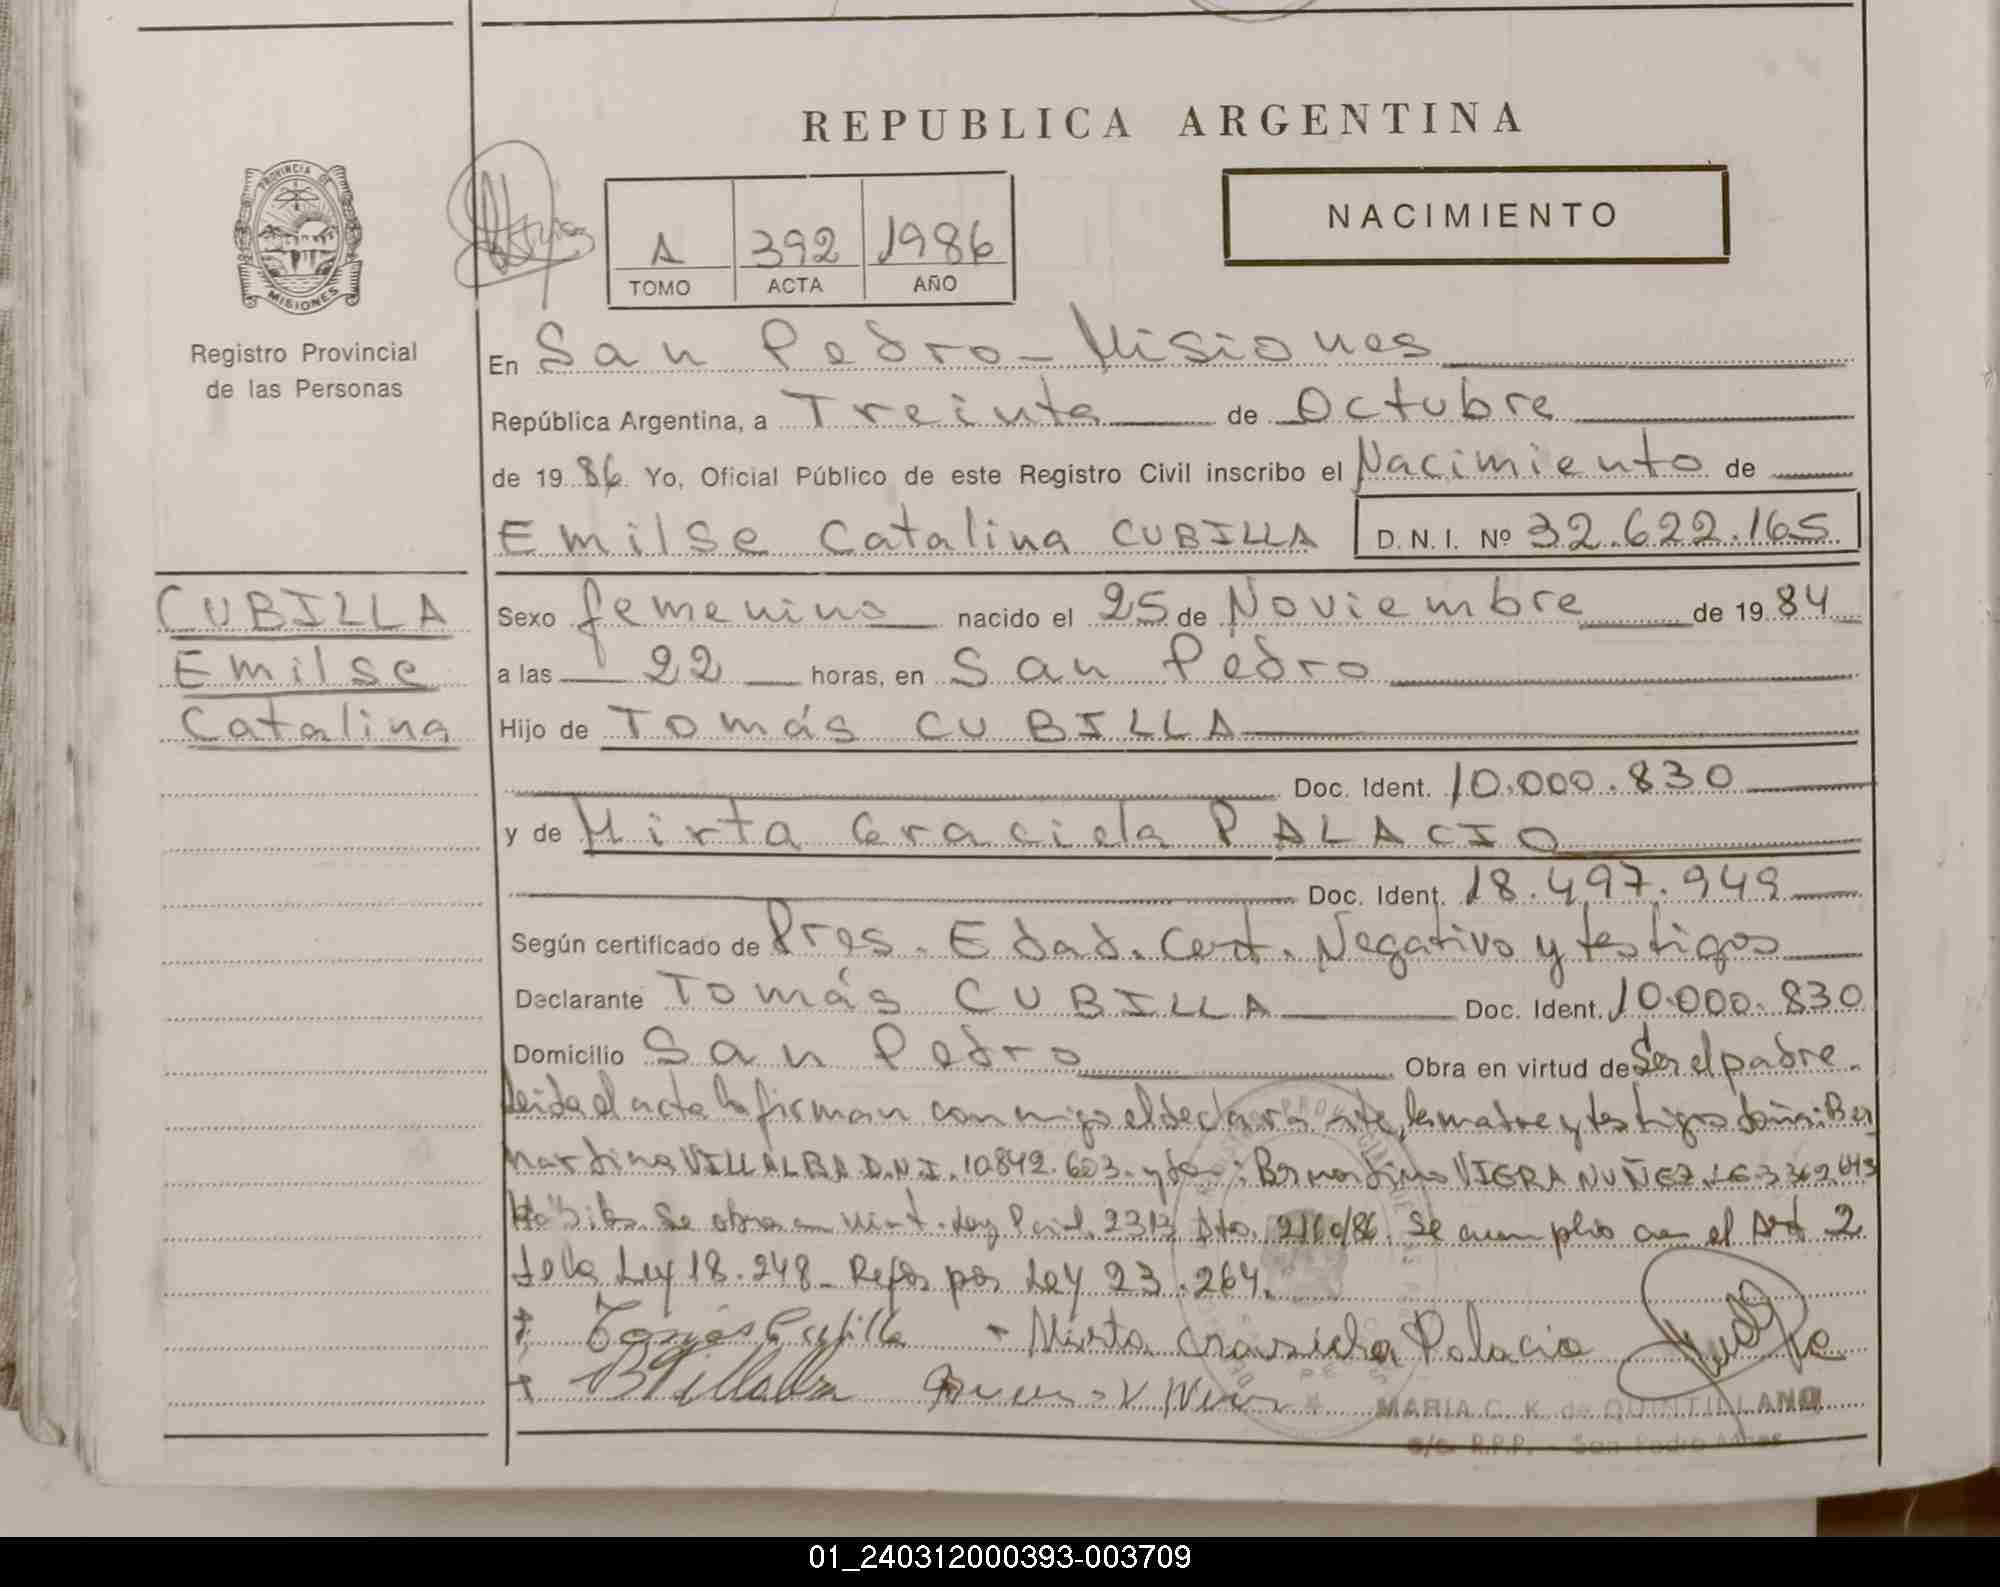 REPUBLICA ARGENTINA
NACIMIENTO
PROVINCIA DE
MISIONES
Registro Provincial
de las Personas
A 392 1986
TOMO ACTA AÑO
En San Pedro - Misiones
República Argentina, a Treinta de Octubre
de 1986 Yo, Oficial Público de este Registro Civil inscribo el Nacimiento de
Emilse Catalina CUBILLA D.N.I. Nº 32.622.165
CUBILLA
Emilse
Catalina
Sexo femenino nacido el 25 de Noviembre de 1984
a las 22 horas, en San Pedro
Hijo de Tomás CUBILLA
Doc. Ident. 10.000.830
y de Mirta Graciela PALACIO
Doc. Ident. 18.497.949
Según certificado de Pres. Edad. Cert. Negativo y testigos
Declarante Tomás CUBILLA Doc. Ident. 10.000.830
Domicilio San Pedro Obra en virtud de Ser el padre.
Leida el acta la firman conmigo el declarante, la madre y testigos doña: Ber
nardina VILLALBA D.N.I. 10842.603. y don: Bernardino VIERA NUÑEZ
Se obra en virt. Ley Pcial. 2313 Dto. 2160/86. Se cumplio con el Art 2
de la Ley 18.248 - Refor por Ley 23.264.
Tomás Cubilla - Mirta Graciela Palacio
BVillalba
MARIA C. K. de QUINTILLANO
R.P.P. - San Pedro Mnes
01_240312000393-003709